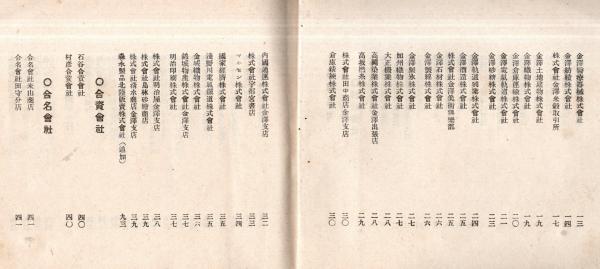 金澤醫療器械株式會社 一三
金澤紡績株式會社 一四
株式會社金澤米穀取引所 一七
金澤土地建物株式會社 一九
金澤織物株式會社 一九
金澤倉庫運輸株式會社 二〇
金澤電氣軌道株式會社 二一
金澤製絲株式會社 二二
金澤軌道興業株式會社 二四
金澤酒造株式會社 二五
株式會社金澤美術俱樂部 二五
金澤石材株式會社 二六
金澤製綿株式會社 二六
金澤製氷株式會社 二七
加州織物株式會社 二七
大正機業株式會社 二八
高岡染業株式會社金澤出張店 二八
高坂吳服株式會社 二九
株式會社田中商店金澤支店 三〇
倉庫精練株式會社 三〇
內國通運株式會社金澤支店 三二
株式會社宇都宮書店 三三
マルモン株式會社 三四
國家經濟株式會社 三五
淺野川電氣鐵道株式會社 三五
金城織物株式會社 三六
錦城物產株式會社金澤支店 三七
明治印刷株式會社 三七
株式會社明治屋金澤支店 三八
株式會社島林砂糖商店 三九
株式會社清水商店金澤支店 三九
森永製品北陸販賣株式會社(追加) 九三
◎合資會社
石谷合資會社 四〇
村彥合資會社 四〇
◎合名會社
合名會社米山商店 四一
合名會社田守分店 四一